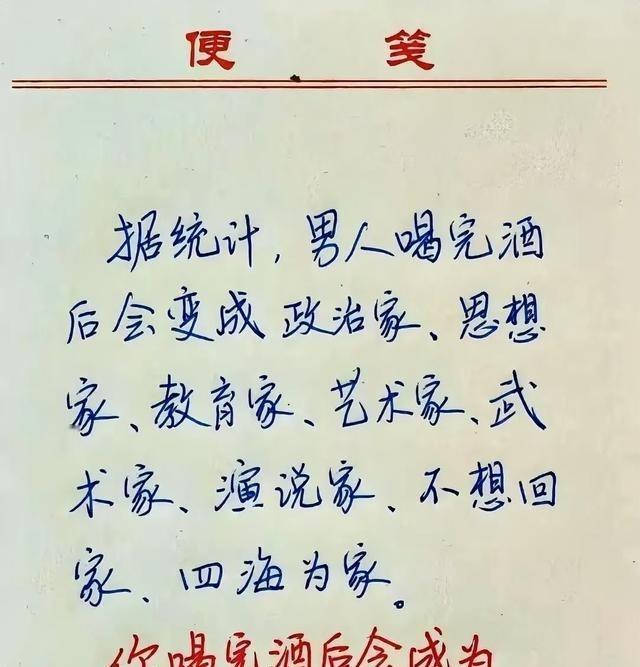 便笺
据统计，男人喝完酒
后会变成政治家、思想
家、教育家、艺术家、武
术家、演说家、不想回
家、四海为家。
你喝完酒后会成为